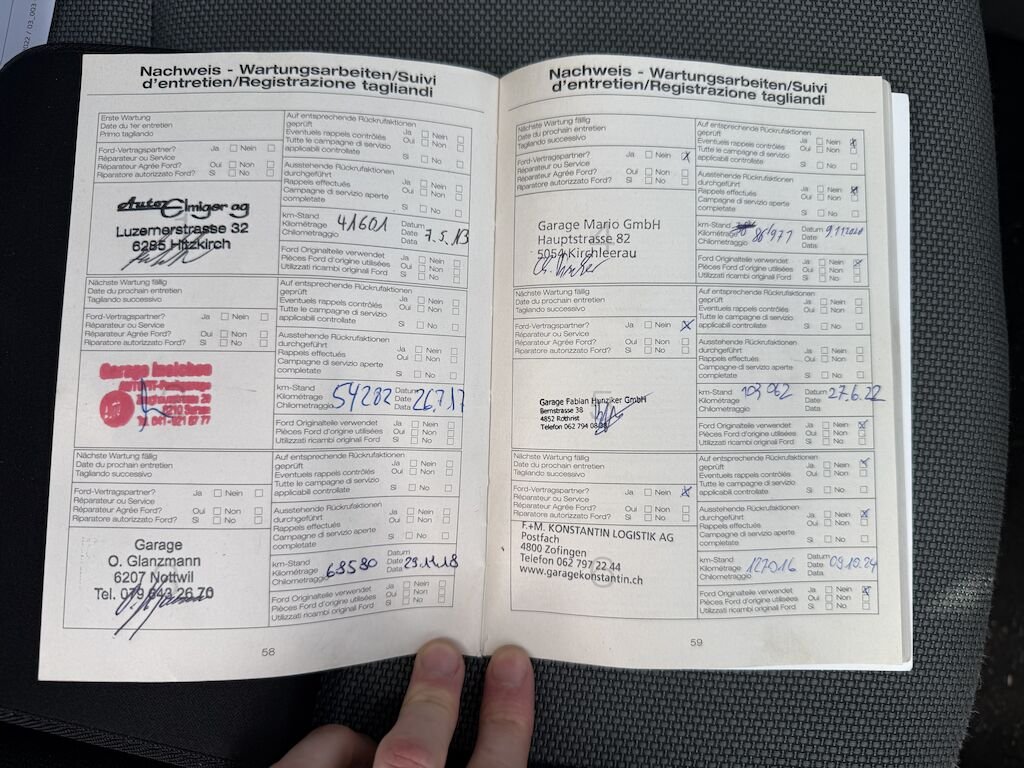 2022 / 03_003
Nachweis - Wartungsarbeiten/Suivi
d'entretien/Registrazione tagliandi
Erste Wartung
Date du 1er entretien
Primo tagliando
Ford-Vertragspartner? Ja Nein
Réparateur ou Service
Réparateur Agrée Ford? Oui Non
Riparatore autorizzato Ford? Si No
Auto Elmiger ag
Luzernerstrasse 32
6285 Hitzkirch
Auf entsprechende Rückrufaktionen
geprüft Ja Nein
Eventuels rappels contrôlés Oui Non
Tutte le campagne di servizio
applicabili controllate Si No
Ausstehende Rückrufaktionen
durchgeführt Ja Nein
Rappels effectués Oui Non
Campagne di servizio aperte
completate Si No
km-Stand Datum
Kilométrage 41601 Date 7.5.13
Chilometraggio Data
Ford Originalteile verwendet Ja Nein
Pièces Ford d'origine utilisées Oui Non
Utilizzati ricambi originali Ford Si No
Nächste Wartung fällig
Date du prochain entretien
Tagliando successivo
Ford-Vertragspartner? Ja Nein
Réparateur ou Service
Réparateur Agrée Ford? Oui Non
Riparatore autorizzato Ford? Si No
Garage
Auf entsprechende Rückrufaktionen
geprüft Ja Nein
Eventuels rappels contrôlés Oui Non
Tutte le campagne di servizio
applicabili controllate Si No
Ausstehende Rückrufaktionen
durchgeführt Ja Nein
Rappels effectués Oui Non
Campagne di servizio aperte
completate Si No
km-Stand Datum
Kilométrage 54282 Date 26.7.17
Chilometraggio Data
Ford Originalteile verwendet Ja Nein
Pièces Ford d'origine utilisées Oui Non
Utilizzati ricambi originali Ford Si No
Nächste Wartung fällig
Date du prochain entretien
Tagliando successivo
Ford-Vertragspartner? Ja Nein
Réparateur ou Service
Réparateur Agrée Ford? Oui Non
Riparatore autorizzato Ford? Si No
Garage
O. Glanzmann
6207 Nottwil
Tel. 079 643 26 70
Auf entsprechende Rückrufaktionen
geprüft Ja Nein
Eventuels rappels contrôlés Oui Non
Tutte le campagne di servizio
applicabili controllate Si No
Ausstehende Rückrufaktionen
durchgeführt Ja Nein
Rappels effectués Oui Non
Campagne di servizio aperte
completate Si No
km-Stand Datum
Kilométrage 63580 Date 29.11.18
Chilometraggio Data
Ford Originalteile verwendet Ja Nein
Pièces Ford d'origine utilisées Oui Non
Utilizzati ricambi originali Ford Si No
58
Nachweis - Wartungsarbeiten/Suivi
d'entretien/Registrazione tagliandi
Nächste Wartung fällig
Date du prochain entretien
Tagliando successivo
Ford-Vertragspartner? Ja Nein X
Réparateur ou Service
Réparateur Agrée Ford? Oui Non
Riparatore autorizzato Ford? Si No
Garage Mario GmbH
Hauptstrasse 82
5054 Kirchleerau
Auf entsprechende Rückrufaktionen
geprüft Ja Nein X
Eventuels rappels contrôlés Oui Non
Tutte le campagne di servizio
applicabili controllate Si No
Ausstehende Rückrufaktionen
durchgeführt Ja Nein X
Rappels effectués Oui Non
Campagne di servizio aperte
completate Si No
km-Stand Datum
Kilométrage 86'977 Date 9.11.2020
Chilometraggio Data
Ford Originalteile verwendet Ja Nein X
Pièces Ford d'origine utilisées Oui Non
Utilizzati ricambi originali Ford Si No
Nächste Wartung fällig
Date du prochain entretien
Tagliando successivo
Ford-Vertragspartner? Ja Nein X
Réparateur ou Service
Réparateur Agrée Ford? Oui Non
Riparatore autorizzato Ford? Si No
Garage Fabian Hunziker GmbH
Bernstrasse 38
4852 Rothrist
Telefon 062 794
Auf entsprechende Rückrufaktionen
geprüft Ja Nein
Eventuels rappels contrôlés Oui Non
Tutte le campagne di servizio
applicabili controllate Si No
Ausstehende Rückrufaktionen
durchgeführt Ja Nein
Rappels effectués Oui Non
Campagne di servizio aperte
completate Si No
km-Stand 103 062 Datum 27.6.22
Kilométrage Date
Chilometraggio Data
Ford Originalteile verwendet Ja Nein X
Pièces Ford d'origine utilisées Oui Non
Utilizzati ricambi originali Ford Si No
Nächste Wartung fällig
Date du prochain entretien
Tagliando successivo
Ford-Vertragspartner? Ja Nein X
Réparateur ou Service
Réparateur Agrée Ford? Oui Non
Riparatore autorizzato Ford? Si No
F.+M. KONSTANTIN LOGISTIK AG
Postfach
4800 Zofingen
Telefon 062 797 22 44
www.garagekonstantin.ch
Auf entsprechende Rückrufaktionen
geprüft Ja Nein X
Eventuels rappels contrôlés Oui Non
Tutte le campagne di servizio
applicabili controllate Si No
Ausstehende Rückrufaktionen
durchgeführt Ja Nein X
Rappels effectués Oui Non
Campagne di servizio aperte
completate Si No
km-Stand Datum
Kilométrage 127016 Date 09.10.24
Chilometraggio Data
Ford Originalteile verwendet Ja Nein X
Pièces Ford d'origine utilisées Oui Non
Utilizzati ricambi originali Ford Si No
59